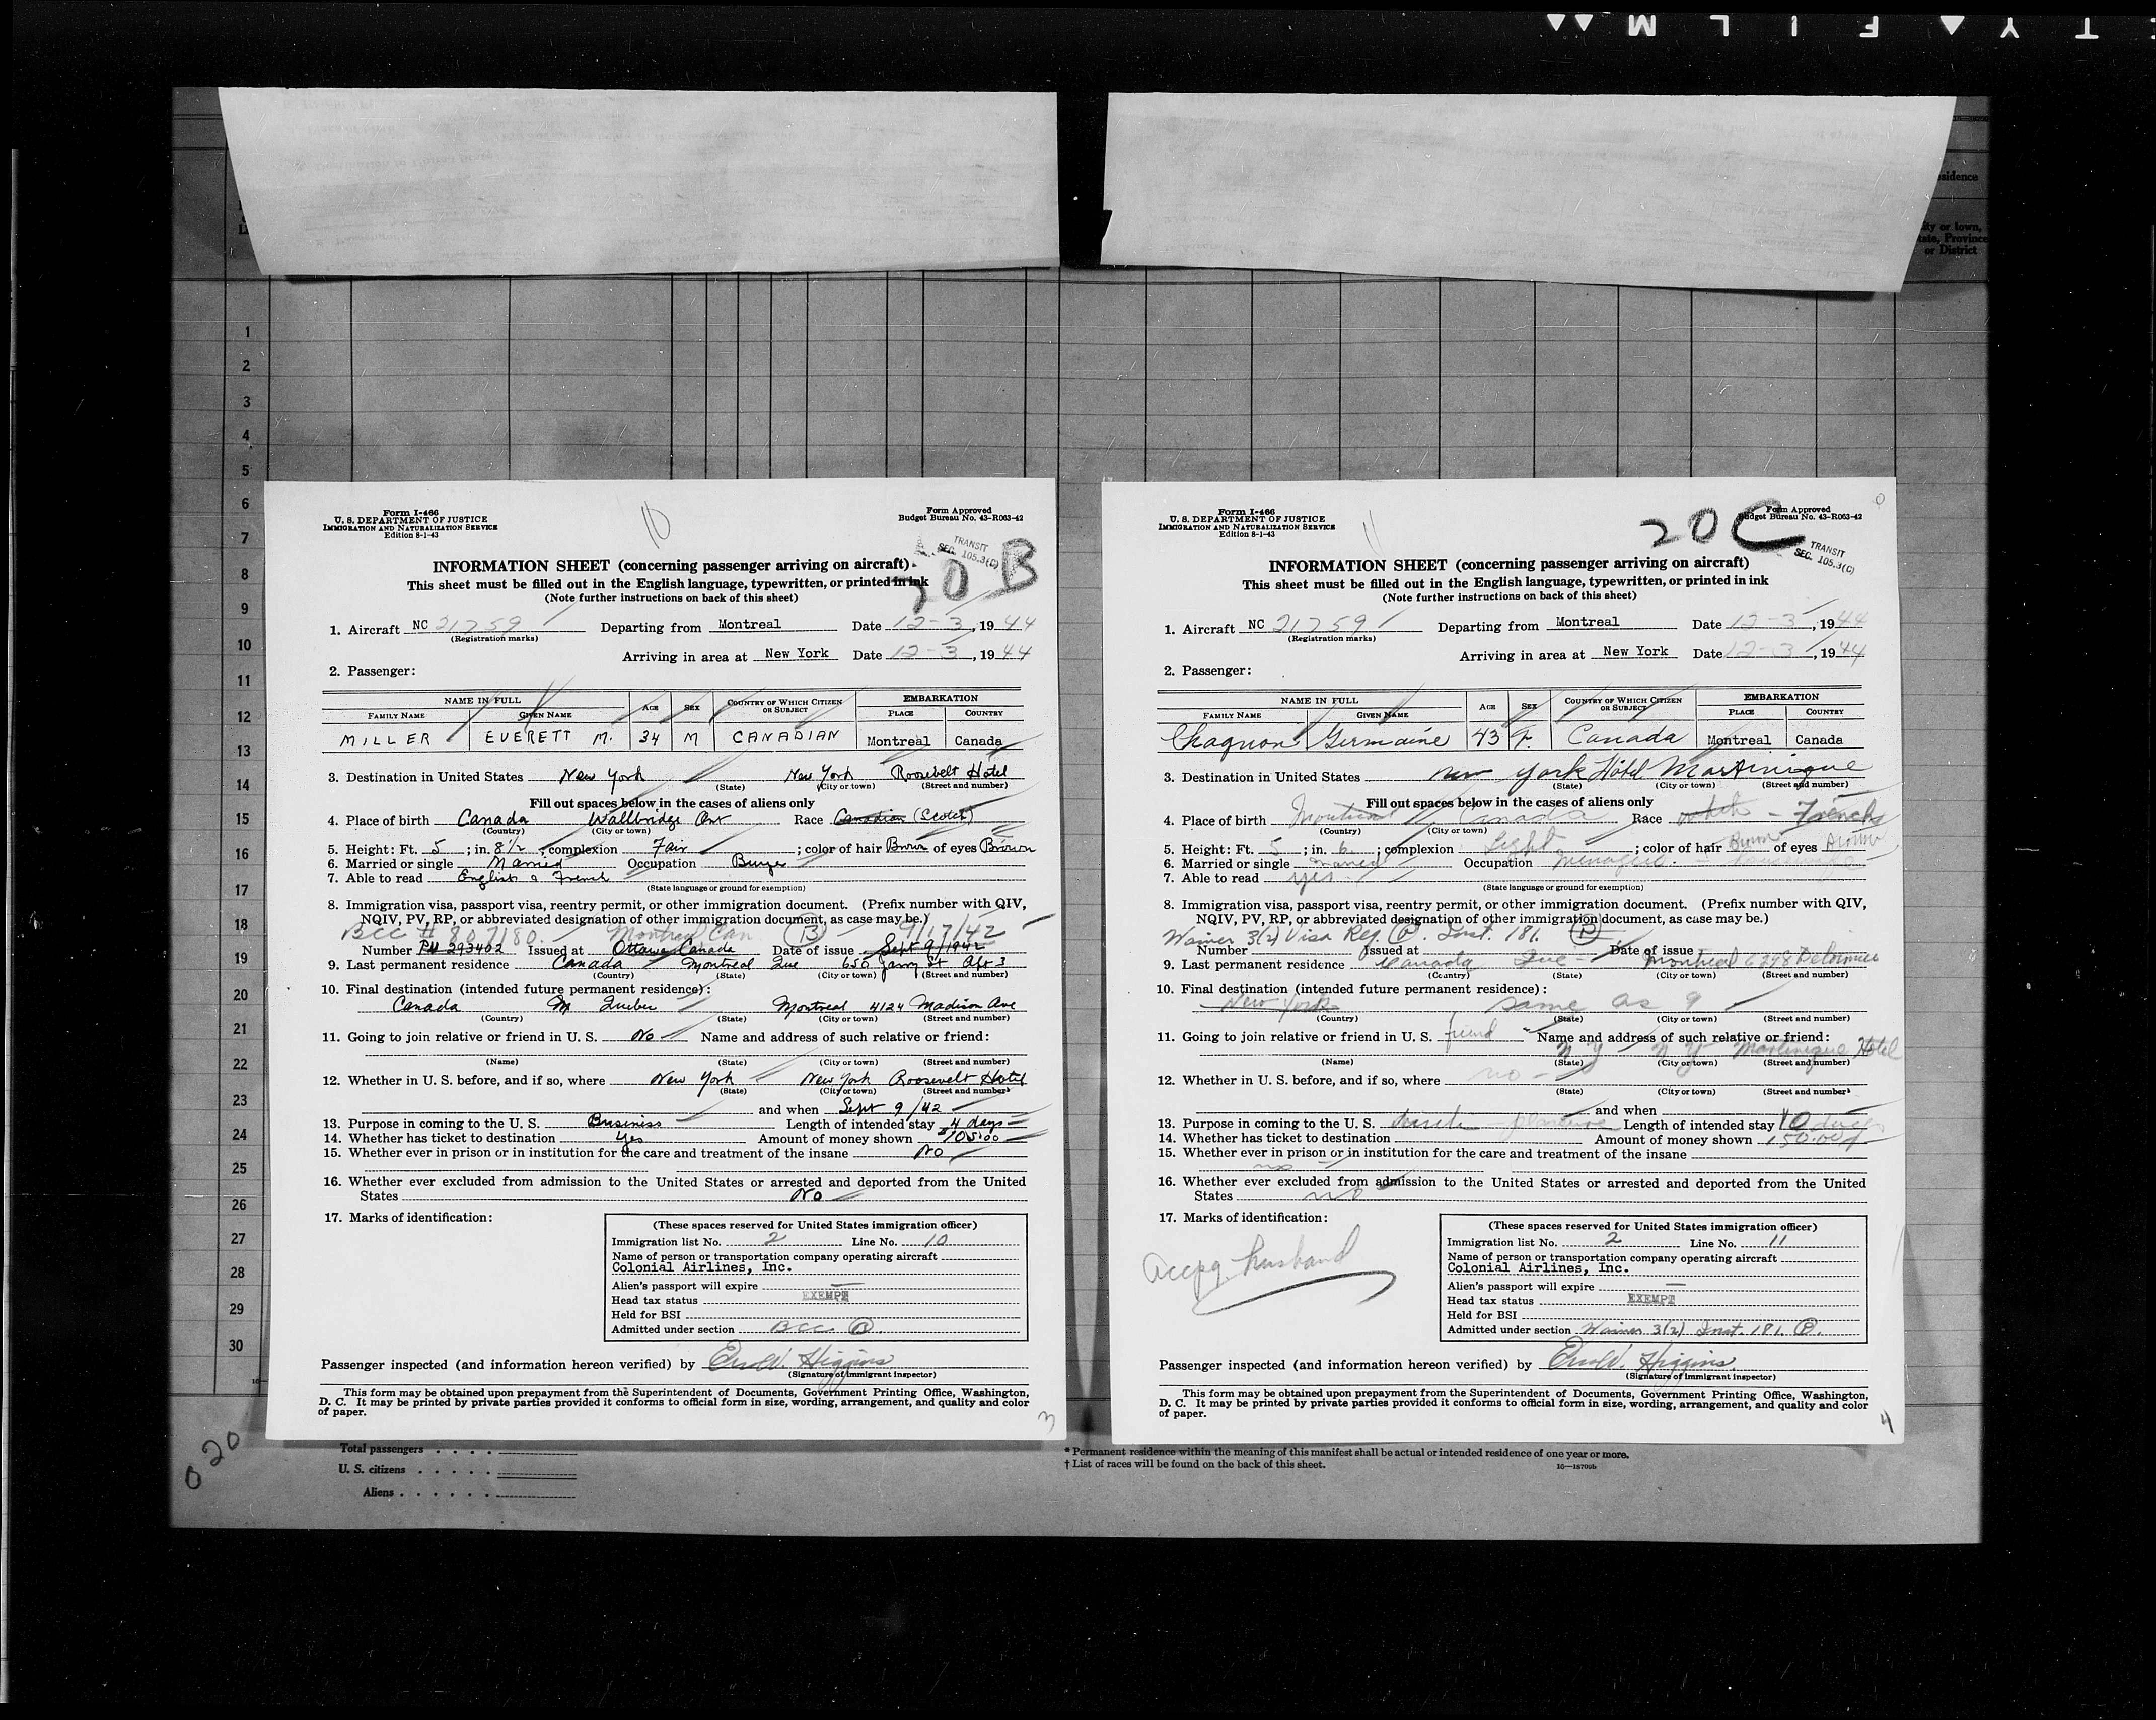 esidence
ity or town,
tate, Province
or District
1
2
3
4
5
6
7
8
9
10
11
12
13
14
15
16
17
18
19
20
21
22
23
24
25
26
27
28
29
30
Form I-466
U. S. DEPARTMENT OF JUSTICE
IMMIGRATION AND NATURALIZATION SERVICE
Edition 8-1-43
10
Form Approved
Budget Bureau No. 43-R063-42
TRANSIT
SEC. 105.3(C)
20 B
INFORMATION SHEET (concerning passenger arriving on aircraft)
This sheet must be filled out in the English language, typewritten, or printed in ink
(Note further instructions on back of this sheet)
1. Aircraft NC 21759 Departing from Montreal Date 12-3, 1944
(Registration marks)
Arriving in area at New York Date 12-3, 1944
2. Passenger:
NAME IN FULL AGE SEX COUNTRY OF WHICH CITIZEN OR SUBJECT EMBARKATION
FAMILY NAME GIVEN NAME PLACE COUNTRY
MILLER EVERETT M. 34 M CANADIAN Montreal Canada
3. Destination in United States New York New York Roosevelt Hotel
(State) (City or town) (Street and number)
Fill out spaces below in the cases of aliens only
4. Place of birth Canada Wallbridge Ont Race Canadian (Scotch)
(Country) (City or town)
5. Height: Ft. 5; in. 8½; complexion Fair; color of hair Brown of eyes Brown
6. Married or single Married Occupation Buyer
7. Able to read English & French
(State language or ground for exemption)
8. Immigration visa, passport visa, reentry permit, or other immigration document. (Prefix number with QIV,
NQIV, PV, RP, or abbreviated designation of other immigration document, as case may be.)
BCC # 807180 Montreal Can B 9/17/42
Number 293402 Issued at Ottawa Canada Date of issue Sept 9/1942
9. Last permanent residence Canada Montreal Que 650 Jarry St Apt 3
(Country) (State) (City or town) (Street and number)
10. Final destination (intended future permanent residence):
Canada Quebec Montreal 4124 Madison Ave
(Country) (State) (City or town) (Street and number)
11. Going to join relative or friend in U. S. No Name and address of such relative or friend:
(Name) (State) (City or town) (Street and number)
12. Whether in U. S. before, and if so, where New York New York Roosevelt Hotel
(State) (City or town) (Street and number)
and when Sept 9/42
13. Purpose in coming to the U. S. Business Length of intended stay 4 days
14. Whether has ticket to destination Yes Amount of money shown $105.00
15. Whether ever in prison or in institution for the care and treatment of the insane No
16. Whether ever excluded from admission to the United States or arrested and deported from the United
States No
17. Marks of identification:
(These spaces reserved for United States immigration officer)
Immigration list No. 2 Line No. 10
Name of person or transportation company operating aircraft
Colonial Airlines, Inc.
Alien's passport will expire —
Head tax status EXEMPT
Held for BSI
Admitted under section BCC B.
Passenger inspected (and information hereon verified) by Higgins
(Signature of immigrant inspector)
This form may be obtained upon prepayment from the Superintendent of Documents, Government Printing Office, Washington,
D. C. It may be printed by private parties provided it conforms to official form in size, wording, arrangement, and quality and color
of paper.
3
Form I-466
U. S. DEPARTMENT OF JUSTICE
IMMIGRATION AND NATURALIZATION SERVICE
Edition 8-1-43
11
20 C
Form Approved
Budget Bureau No. 43-R063-42
TRANSIT
SEC. 105.3(C)
INFORMATION SHEET (concerning passenger arriving on aircraft)
This sheet must be filled out in the English language, typewritten, or printed in ink
(Note further instructions on back of this sheet)
1. Aircraft NC 21759 Departing from Montreal Date 12-3, 1944
(Registration marks)
Arriving in area at New York Date 12-3, 1944
2. Passenger:
NAME IN FULL AGE SEX COUNTRY OF WHICH CITIZEN OR SUBJECT EMBARKATION
FAMILY NAME GIVEN NAME PLACE COUNTRY
Chagnon Germaine 43 F. Canada Montreal Canada
3. Destination in United States New York Hôtel Martinique
(State) (City or town) (Street and number)
Fill out spaces below in the cases of aliens only
4. Place of birth Montreal Canada Race white - French
(Country) (City or town)
5. Height: Ft. 5; in. 6; complexion Light; color of hair Brown of eyes Brown
6. Married or single married Occupation
7. Able to read yes
(State language or ground for exemption)
8. Immigration visa, passport visa, reentry permit, or other immigration document. (Prefix number with QIV,
NQIV, PV, RP, or abbreviated designation of other immigration document, as case may be.)
Waiver 3(2) Visa Reg. P. Inst. 181. P
Number Issued at Date of issue
9. Last permanent residence Canada Que - Montreal 6298 Delorimier
(Country) (State) (City or town) (Street and number)
10. Final destination (intended future permanent residence):
New York same as 9
(Country) (State) (City or town) (Street and number)
11. Going to join relative or friend in U. S. friend Name and address of such relative or friend:
N Y N Y Martinique Hotel
(Name) (State) (City or town) (Street and number)
12. Whether in U. S. before, and if so, where no
(State) (City or town) (Street and number)
and when
13. Purpose in coming to the U. S. pleasure Length of intended stay 10 days
14. Whether has ticket to destination Amount of money shown 150.00
15. Whether ever in prison or in institution for the care and treatment of the insane
no
16. Whether ever excluded from admission to the United States or arrested and deported from the United
States no
17. Marks of identification:
accpg husband
(These spaces reserved for United States immigration officer)
Immigration list No. 2 Line No. 11
Name of person or transportation company operating aircraft
Colonial Airlines, Inc.
Alien's passport will expire —
Head tax status EXEMPT
Held for BSI
Admitted under section Waiver 3(2) Inst. 181. P.
Passenger inspected (and information hereon verified) by Higgins
(Signature of immigrant inspector)
This form may be obtained upon prepayment from the Superintendent of Documents, Government Printing Office, Washington,
D. C. It may be printed by private parties provided it conforms to official form in size, wording, arrangement, and quality and color
of paper.
4
020
Total passengers . . . .
U. S. citizens . . . . .
Aliens . . . . . .
* Permanent residence within the meaning of this manifest shall be actual or intended residence of one year or more.
† List of races will be found on the back of this sheet.
16—18709b